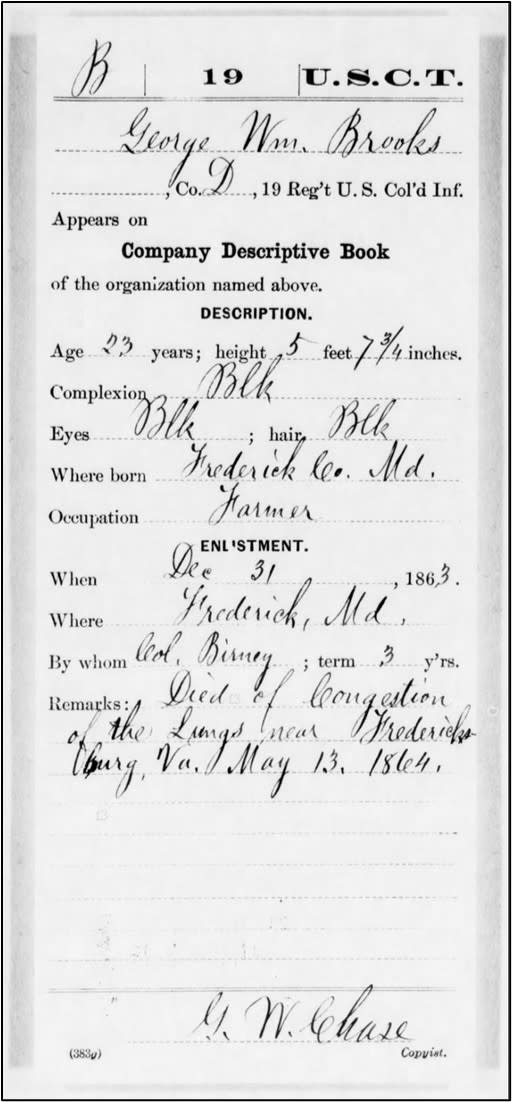 B | 19 | U.S.C.T.
George Wm. Brooks
, Co. D, 19 Reg't U. S. Col'd Inf.
Appears on
Company Descriptive Book
of the organization named above.
DESCRIPTION.
Age 23 years; height 5 feet 7 3/4 inches.
Complexion Blk
Eyes Blk ; hair Blk
Where born Frederick Co. Md.
Occupation Farmer
ENLISTMENT.
When Dec 31, 1863.
Where Frederick, Md.
By whom Col. Birney ; term 3 y'rs.
Remarks: Died of Congestion
of the Lungs near Fredericks-
burg, Va. May 13. 1864.
G. W. Chase
(383g) Copyist.